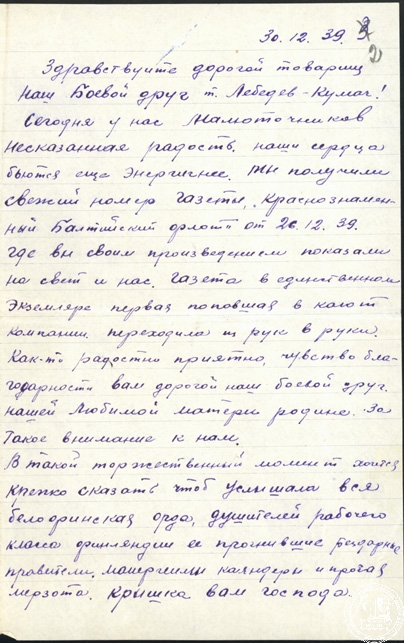 30.12.39.
2)
Здравствуйте дорогой товарищ
наш Боевой друг т. Лебедев-Кумач!
Сегодня у нас Мамоточников
несказанная радость. наши сердца
бьются еще Энергичнее. Мы получили
свежий номер газеты, "Краснознамен-
ный Балтийский флот" от 26.12.39.
где вы своим произведением показали
на свет и нас. Газета в единственном
Экземляре первая попавшая в кают
компании. переходила из рук в руки.
Как-то радостно приятно, чувство бла-
годарности вам дорогой наш боевой друг.
нашей Любимой матери родине. За
Такое внимание к нам.
В такой торжественный момент хоится
крепко сказать чтоб услышала вся
белофинская орда, душителей рабочего
класса финляндии ее прогнившие бездарные
правители, манергеймы каяндеры и прочая
мерзота. Крышка вам господа.